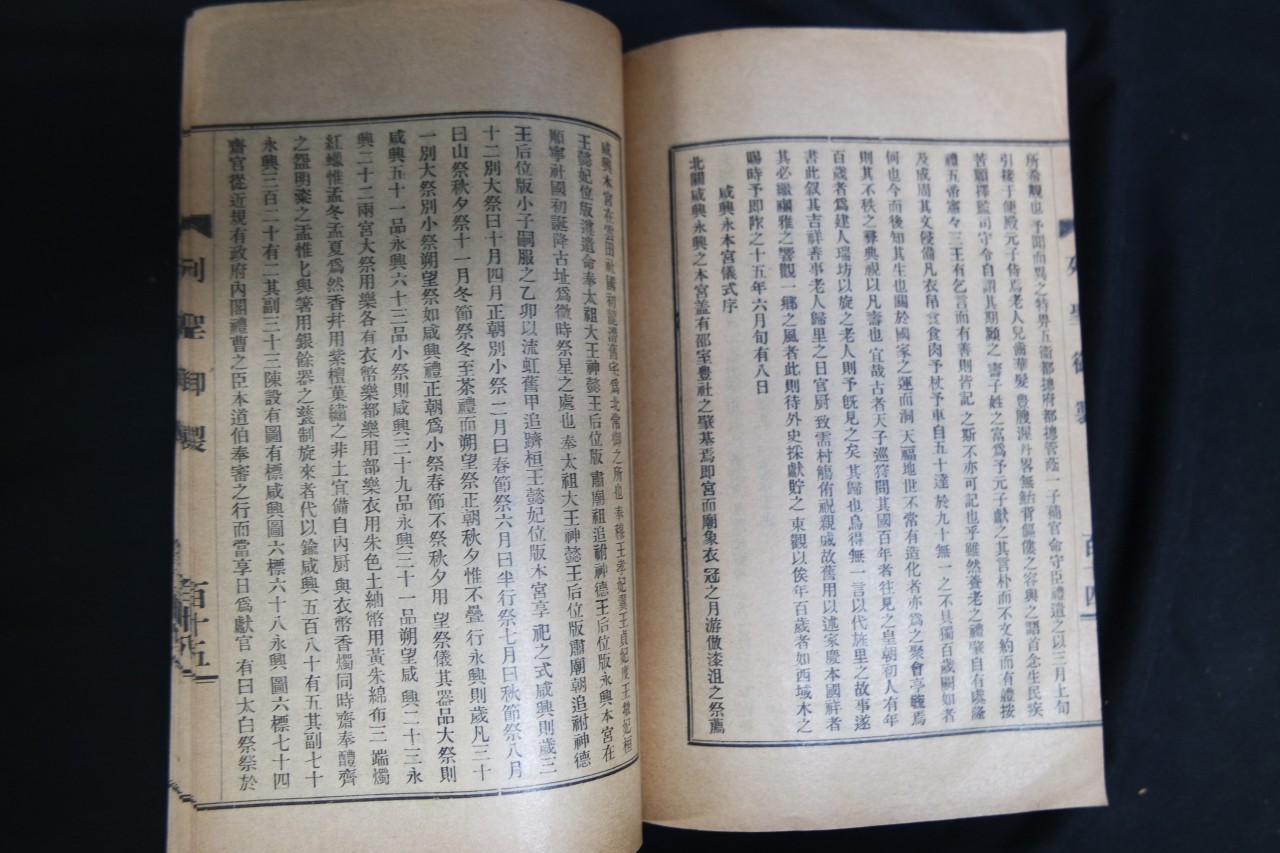 列聖御製
所希覯也予聞而異之特畀五衛都摠府都摠管蔭一子補官命守臣禮遣之以三月上旬
引接于便殿元子侍焉老人兒齒華髮豊腴渥丹畧無鮐背傴僂之容與之語首念生民疾
苦願擇監司守令自謂其期頤之壽子姓之富爲予元子獻之其言朴而不文約而有禮按
禮五帝憲々三王有乞言而有善則皆記之斯不亦可記也乎雖然養老之禮肇自有虞
及成周其文寖備凡衣帛食肉予杖予車自五十達於九十無一之不具獨百歲闕如者
何也今而後知其生也關於國家之運而洞天福地世不常有造化者亦爲之聚會亭毒焉
則其不秩之彝典視以凡壽也宜哉古者天子巡狩問其國百年者往見之皇朝初人有年
百歲者爲建人瑞坊以旋之老人則予旣見之矣其歸也烏得無一言以代旌里之故事遂
書此叙其吉祥善事老人歸里之日宮厨致需村觴侑祝親戚故舊用以述家慶本國祥者
其必繼嘽雅之響觀一鄕之風者此則待外史採獻貯之東觀以俟年百歲者如西域木之
賜時予卽阼之十五年六月旬有八日
咸興永本宮儀式序
北關咸興永興之本宮盖有邰室豊社之肇基焉卽宮而廟象衣冠之月游倣漆沮之祭薦
咸興本宮在雲田社國初龍潛舊宅爲北常御之所也奉穆王孝妃翼王貞妃度王敬妃桓
王懿妃位版遵遺命奉太祖大王神懿王后位版肅廟祖追祔神德王后位版永興本宮在
順寧社國初誕降古址爲徵時祭星之處也奉太祖大王神懿王后位版肅廟朝追祔神德
王后位版小子嗣服之乙卯以流虹舊甲追躋桓王懿妃位版本宮享祀之式咸興則歲三
十二別大祭日十月四月正朝別小祭二月日春節祭六月日半行祭七月日秋節祭八月
日山祭秋夕祭十一月冬節祭冬至茶禮而朔望祭正朝秋夕惟不疊行永興則歲凡三十
一別大祭別小祭朔望祭如咸興禮正朝爲小祭春節不祭秋夕用望祭儀其器品大祭則
咸興五十一品永興六十三品小祭則咸興三十九品永興三十一品朔望咸興二十三永
興二十二兩宮大祭用樂各有衣幣樂都樂用部樂衣用朱色土紬幣用黃朱綿布二端燭
紅蠟惟孟冬孟夏爲然香幷用紫檀菓繡之非土宜備自內厨與衣幣香燭同時齋奉醴齊
之盎明粢之盂惟匕與箸用銀餘器之甆制旋來者代以鍮咸興五百八十有五其副七十
永興三百二十有二其副三十三陳設有圖有標咸興圖六標六十八永興圖六標七十四
齋官從近規有政府內閣禮曹之臣本道伯奉審之行而當享日爲獻官有曰太白祭祭於
列聖御製
百十五